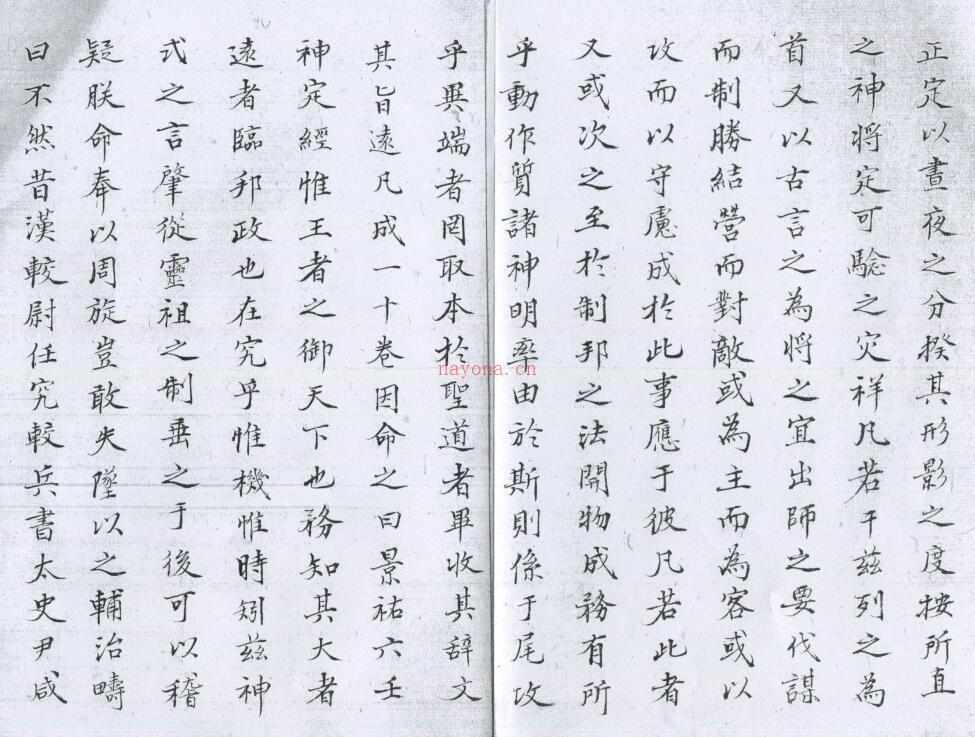 正定以晝夜之分揆其形影之度按所直
之神將定可驗之灾祥凡若干兹列之為
首又以古言之為將之宜出師之要伐謀
而制勝結營而對敵或為主而為客或以
攻而以守慮成於此事應于彼凡若此者
又或次之至於制邦之法開物成務有所
乎動作質諸神明率由於斯則係于尾攻
乎異端者罔取本於聖道者畢收其辞文
其旨遠凡成一十卷因命之曰景祐六壬
神定經惟王者之御天下也務知其大者
遠者臨邦政也在究乎惟機惟時矧兹神
式之言肇從靈祖之制垂之于後可以稽
疑朕命奉以周旋豈敢失墜以之輔治疇
曰不然昔漢較尉任究較兵書太史尹咸
nayona.cn